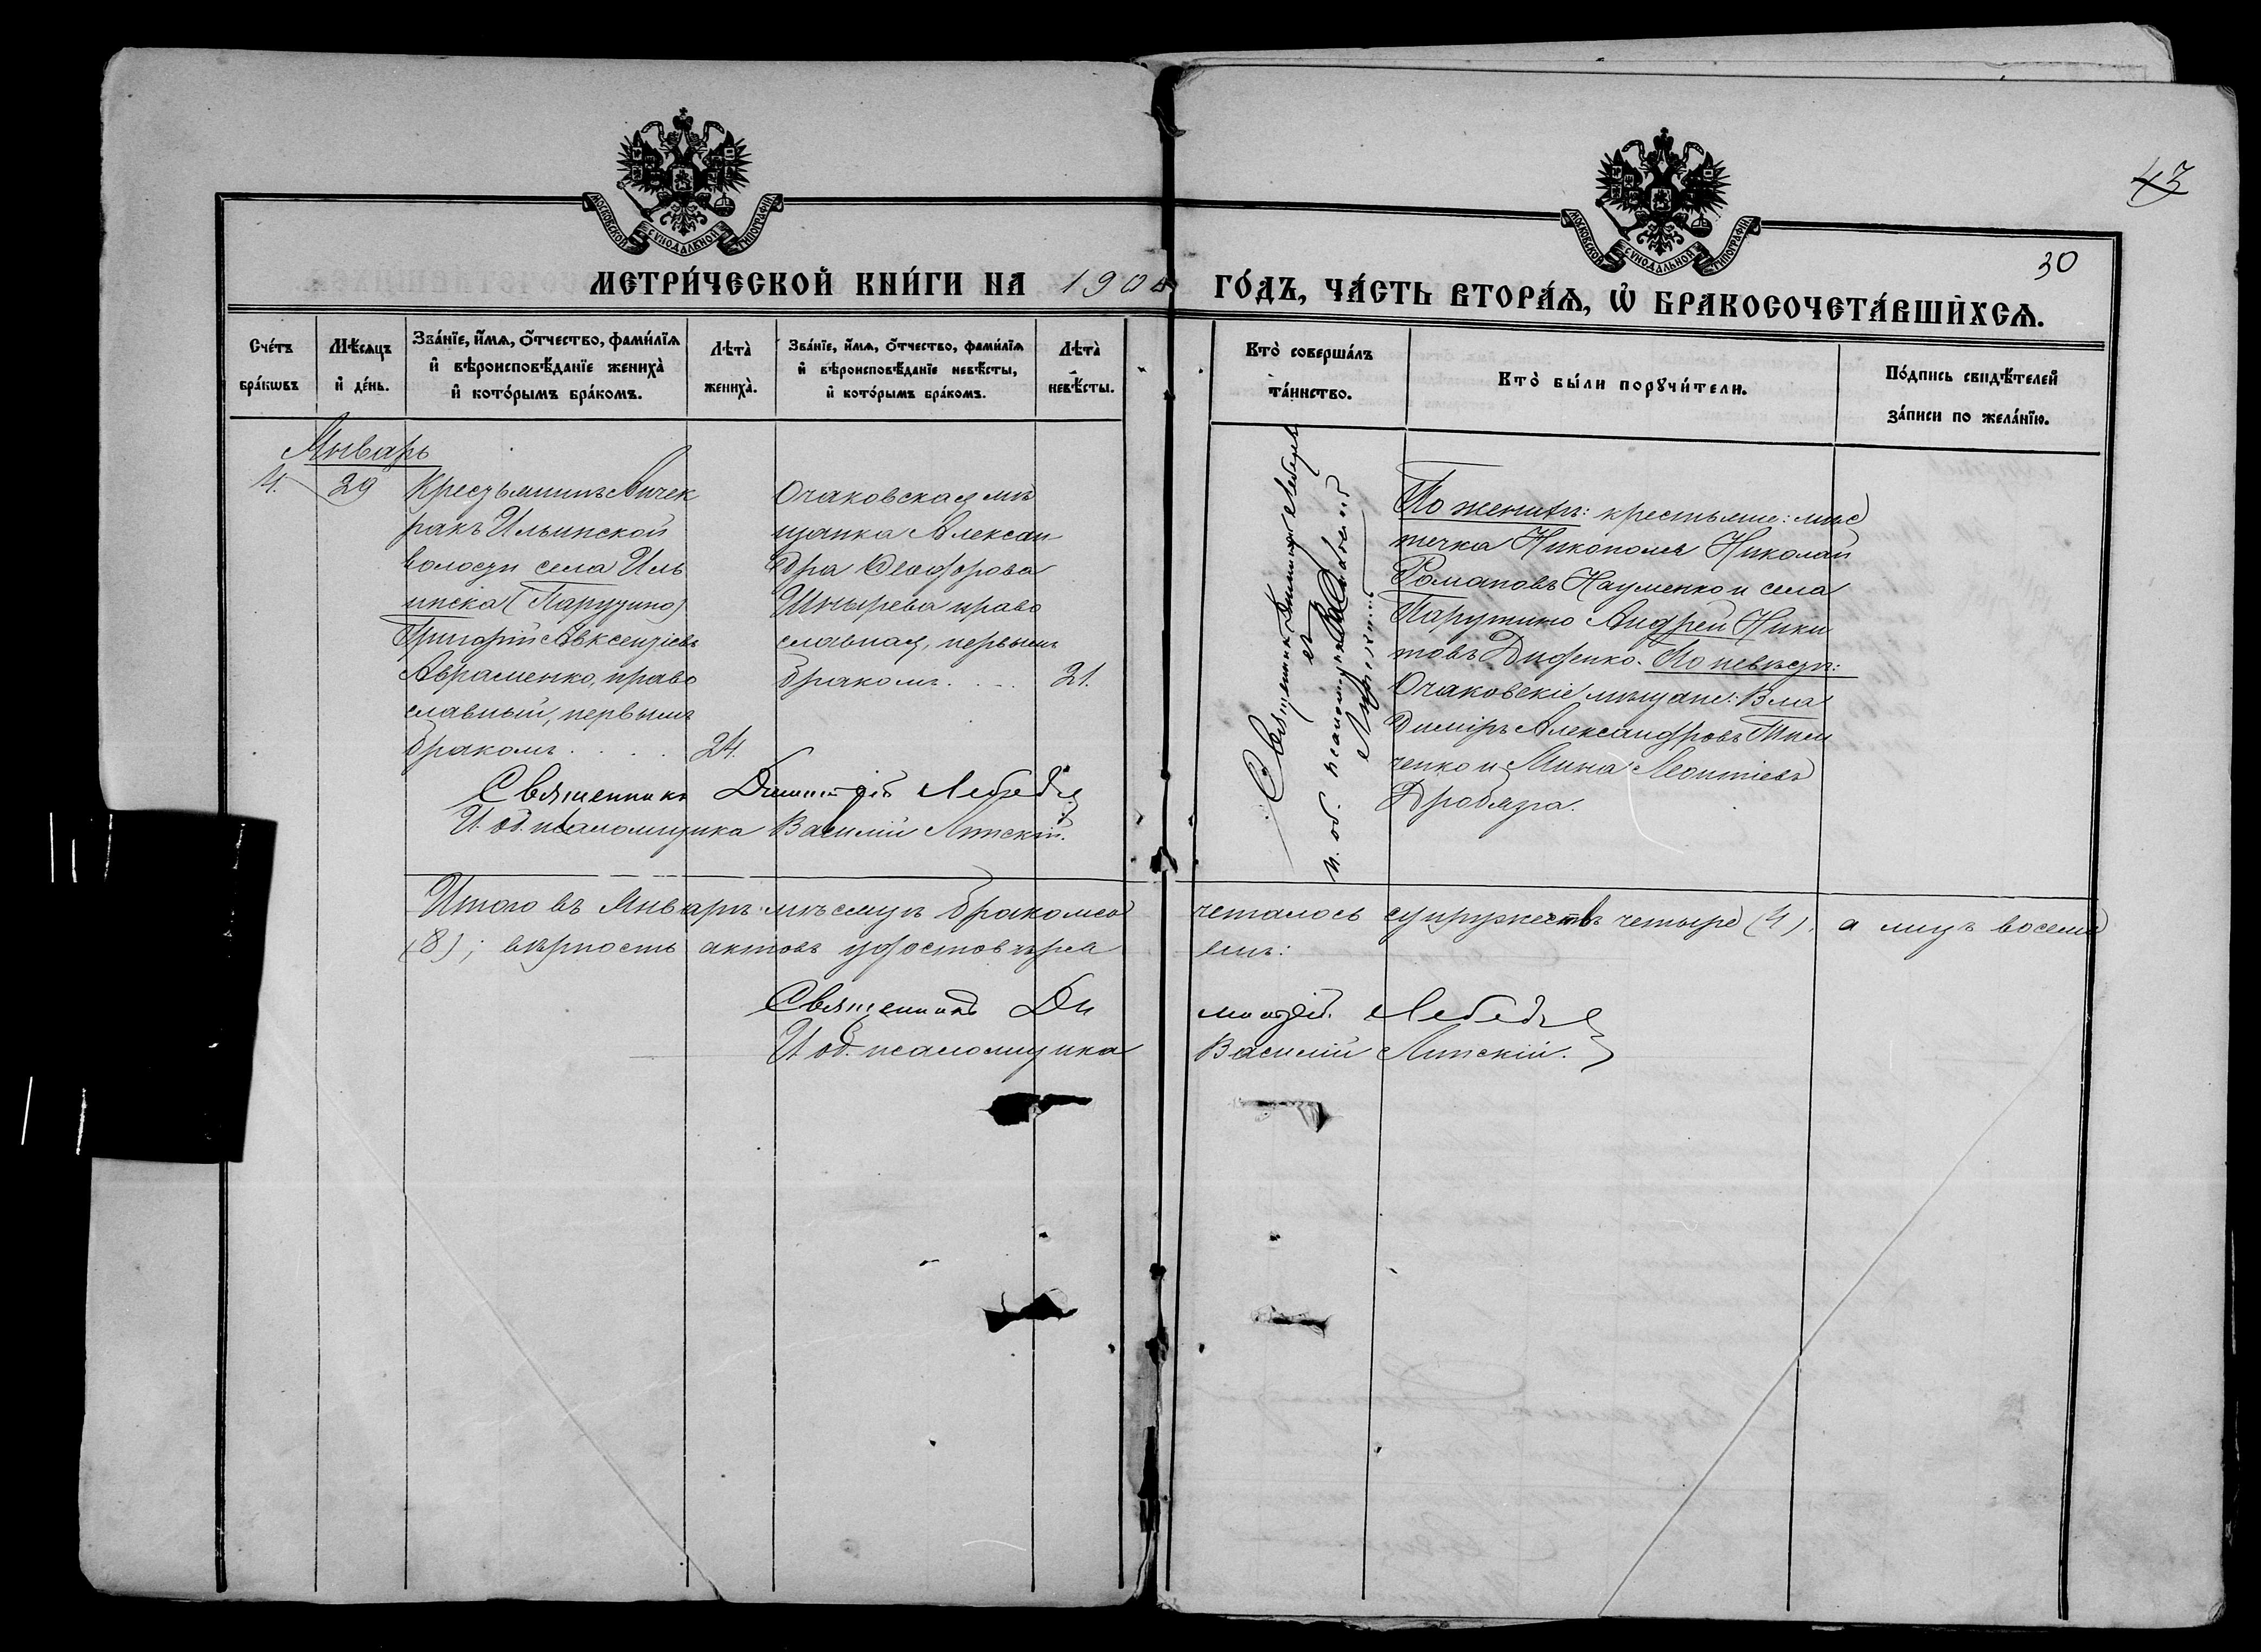 43
30
МОСКОВСКОЙ СѴНОДАЛЬНОЙ ТИПОГРАФІИ
МОСКОВСКОЙ СѴНОДАЛЬНОЙ ТИПОГРАФІИ
МЕТРИ́ЧЕСКОЙ КНИ́ГИ НА 1904 ГО́ДЪ, ЧА́СТЬ ВТОРА́Ѧ, Ѡ҆ БРАКОСОЧЕТА́ВШИХСѦ.
Сче́тъ
бра́кѡвъ
Мѣ́сяцъ
и҆ де́нь.
Зва́нїе, и҆́мѧ, ѻ҆́тчество, фами́лїѧ
и҆ вѣроисповѣ́данїе жениха̀
и҆ кото́рымъ бра́комъ.
Лѣта̀
жениха̀.
Зва́нїе, и҆́мѧ, ѻ҆́тчество, фами́лїѧ
и҆ вѣроисповѣ́данїе невѣ́сты,
и҆ кото́рымъ бра́комъ.
Лѣта̀
невѣ́сты.
Кто̀ соверша́лъ
та́инство.
Кто̀ бы́ли порꙋчи́тели.
По́дпись свидѣ́телей
за́писи по жела́нїю.
Январь
4. 29
Крестьянинъ Аичек
ракъ Ильинской
волости села Иль
инска (Парутино)
Григорій Авксентіевъ
Авраменко, право
славный, первымъ
бракомъ . . . . 24.
Очаковская мѣ
щанка Алексан
дра Ѳеодорова
Шнырева право
славная, первымъ
бракомъ . . . 21.
Священникъ Димитрій Лебедевъ
И. об. псаломщика Василій Липскій.
Священникъ Димитрій Лебедевъ
съ
и. об. псаломщика
Липскимъ
По женихѣ: крестьяне: мѣс
течка Никополя Николай
Романовъ Науменко и села
Парутино Андрей Ники
товъ Диденко. По невѣстѣ:
Очаковскіе мѣщане: Вла
диміръ Александровъ Тим
ченко и Мина Леонтіевъ
Дробязга.
Итого въ Январѣ мѣсяцѣ бракомсо четалось супружествъ четыре (4), а лицъ восемь
(8); вѣрность актовъ удостовѣря емъ:
Священникъ Ди митрій Лебедевъ
И. об. псаломщика Василій Липскій.